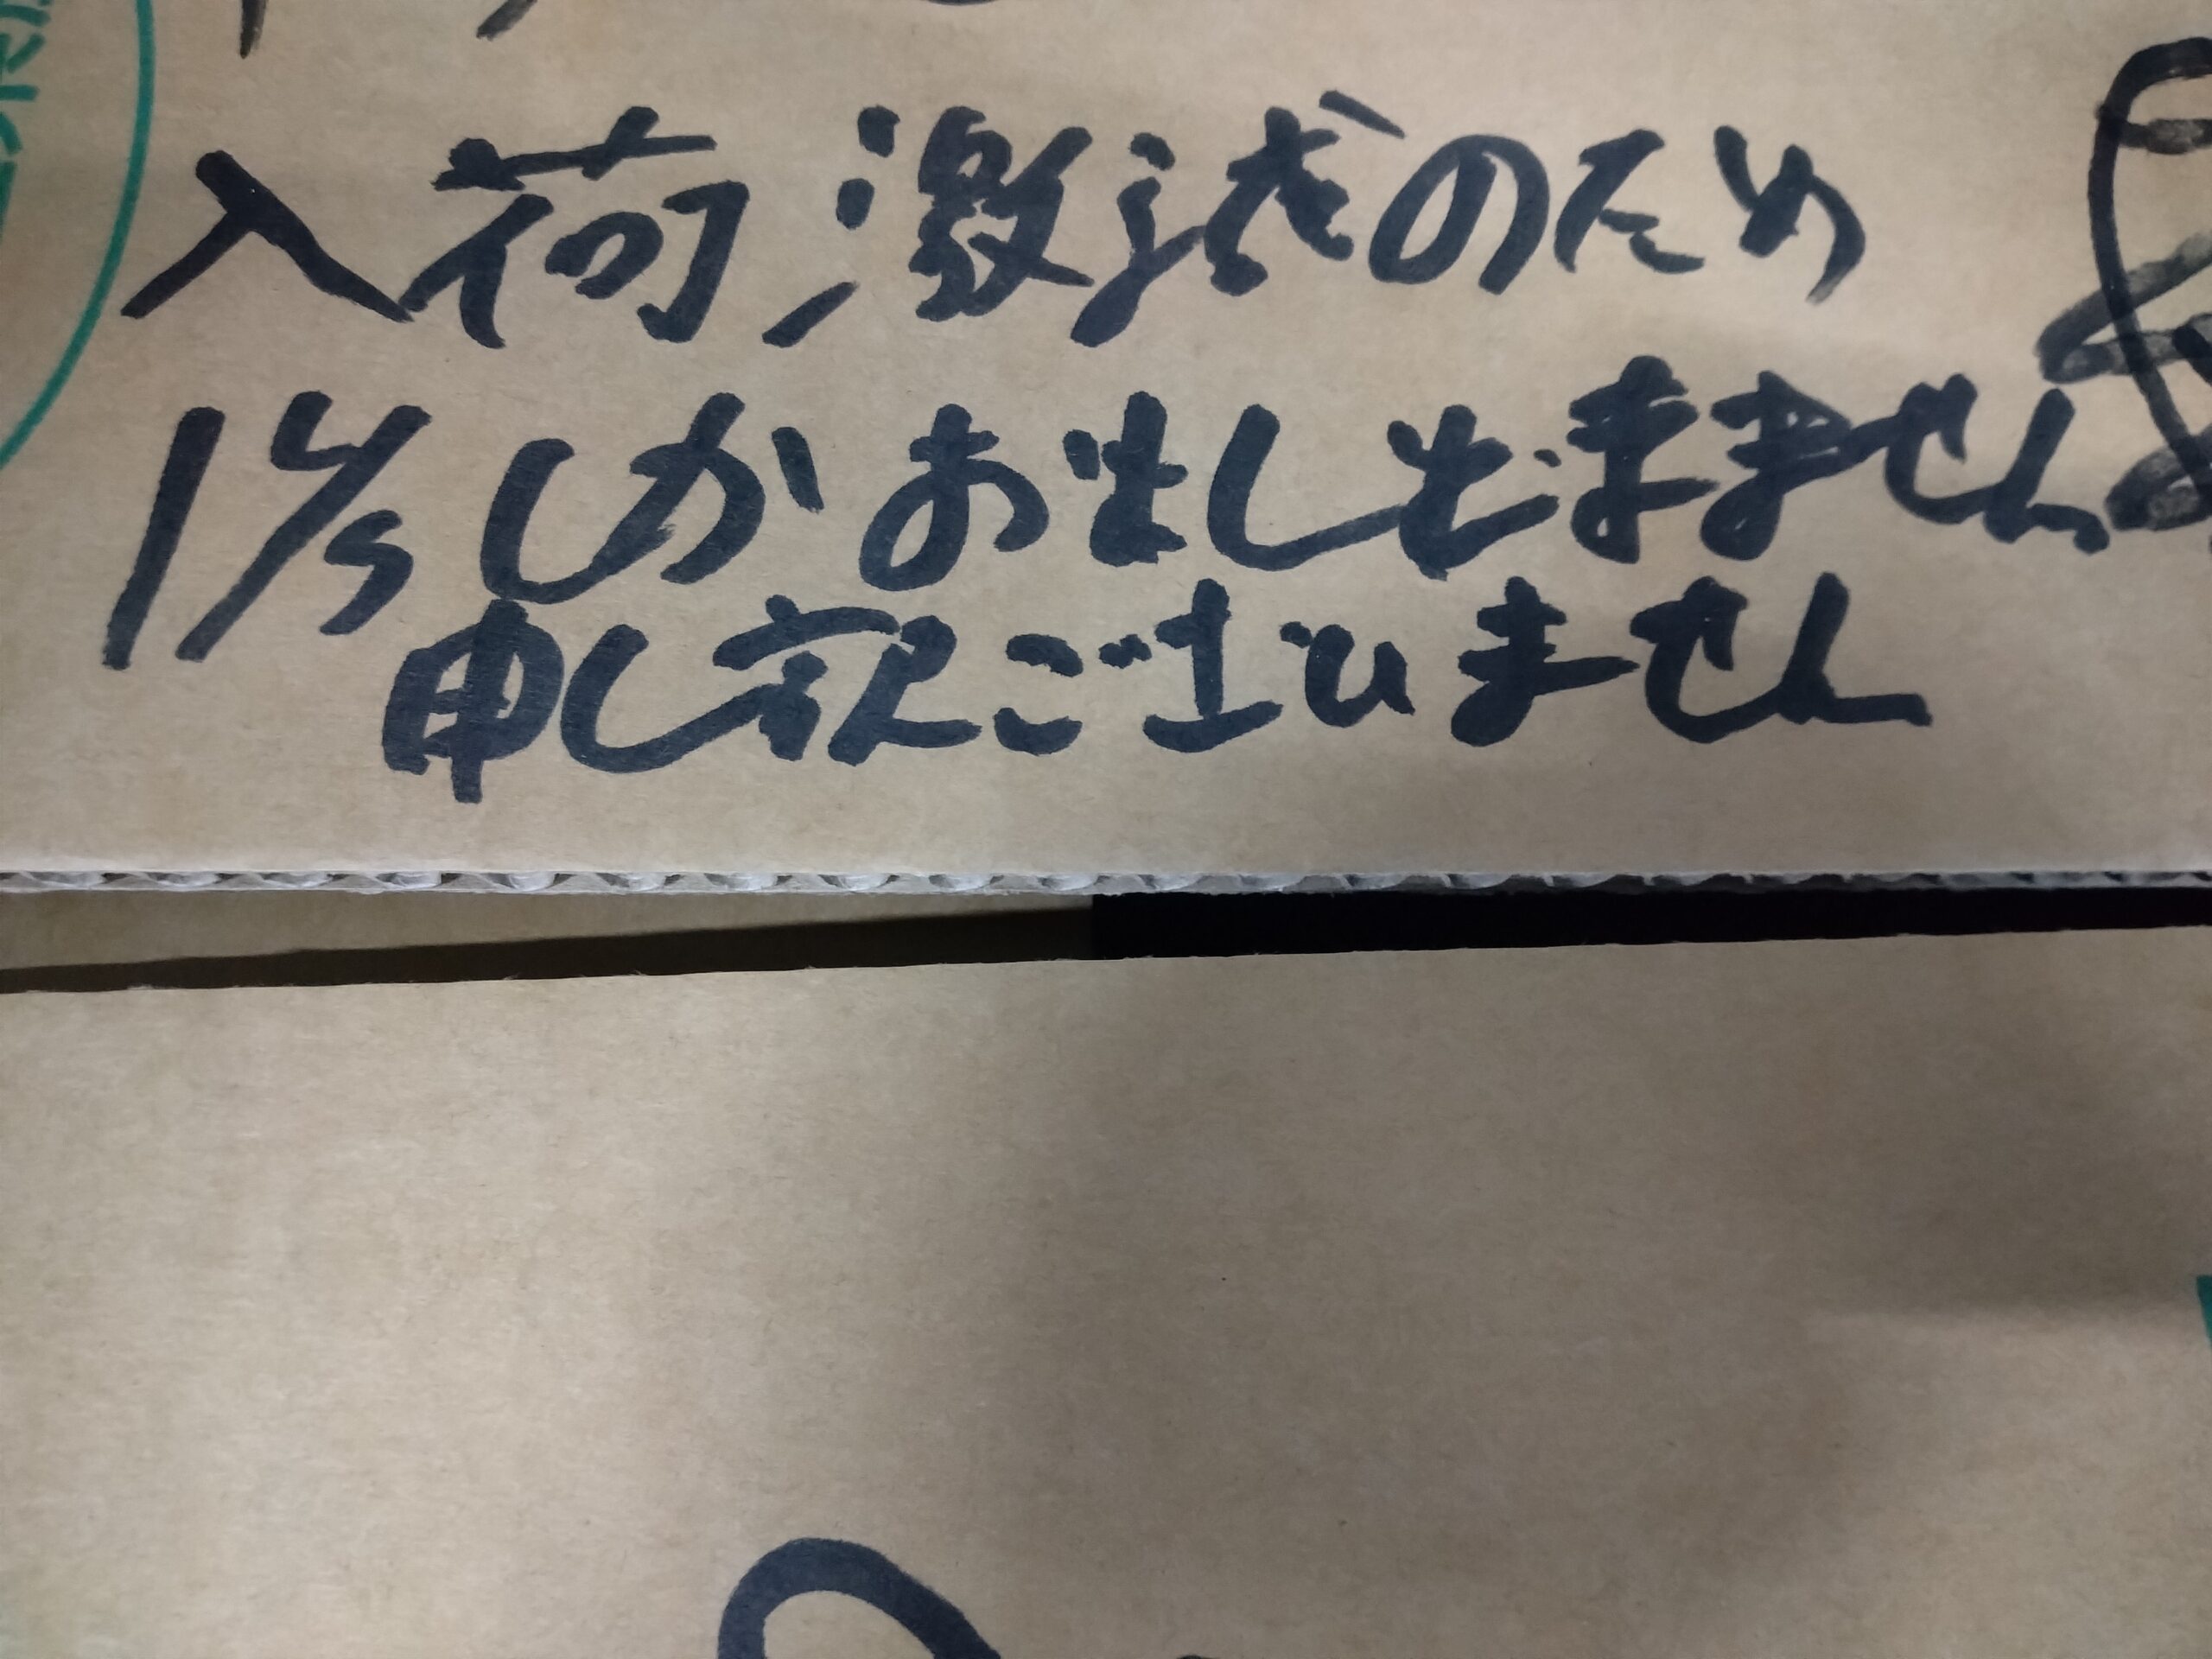 入荷激減のため
1ケースしかお出しできません
申し訳ございません